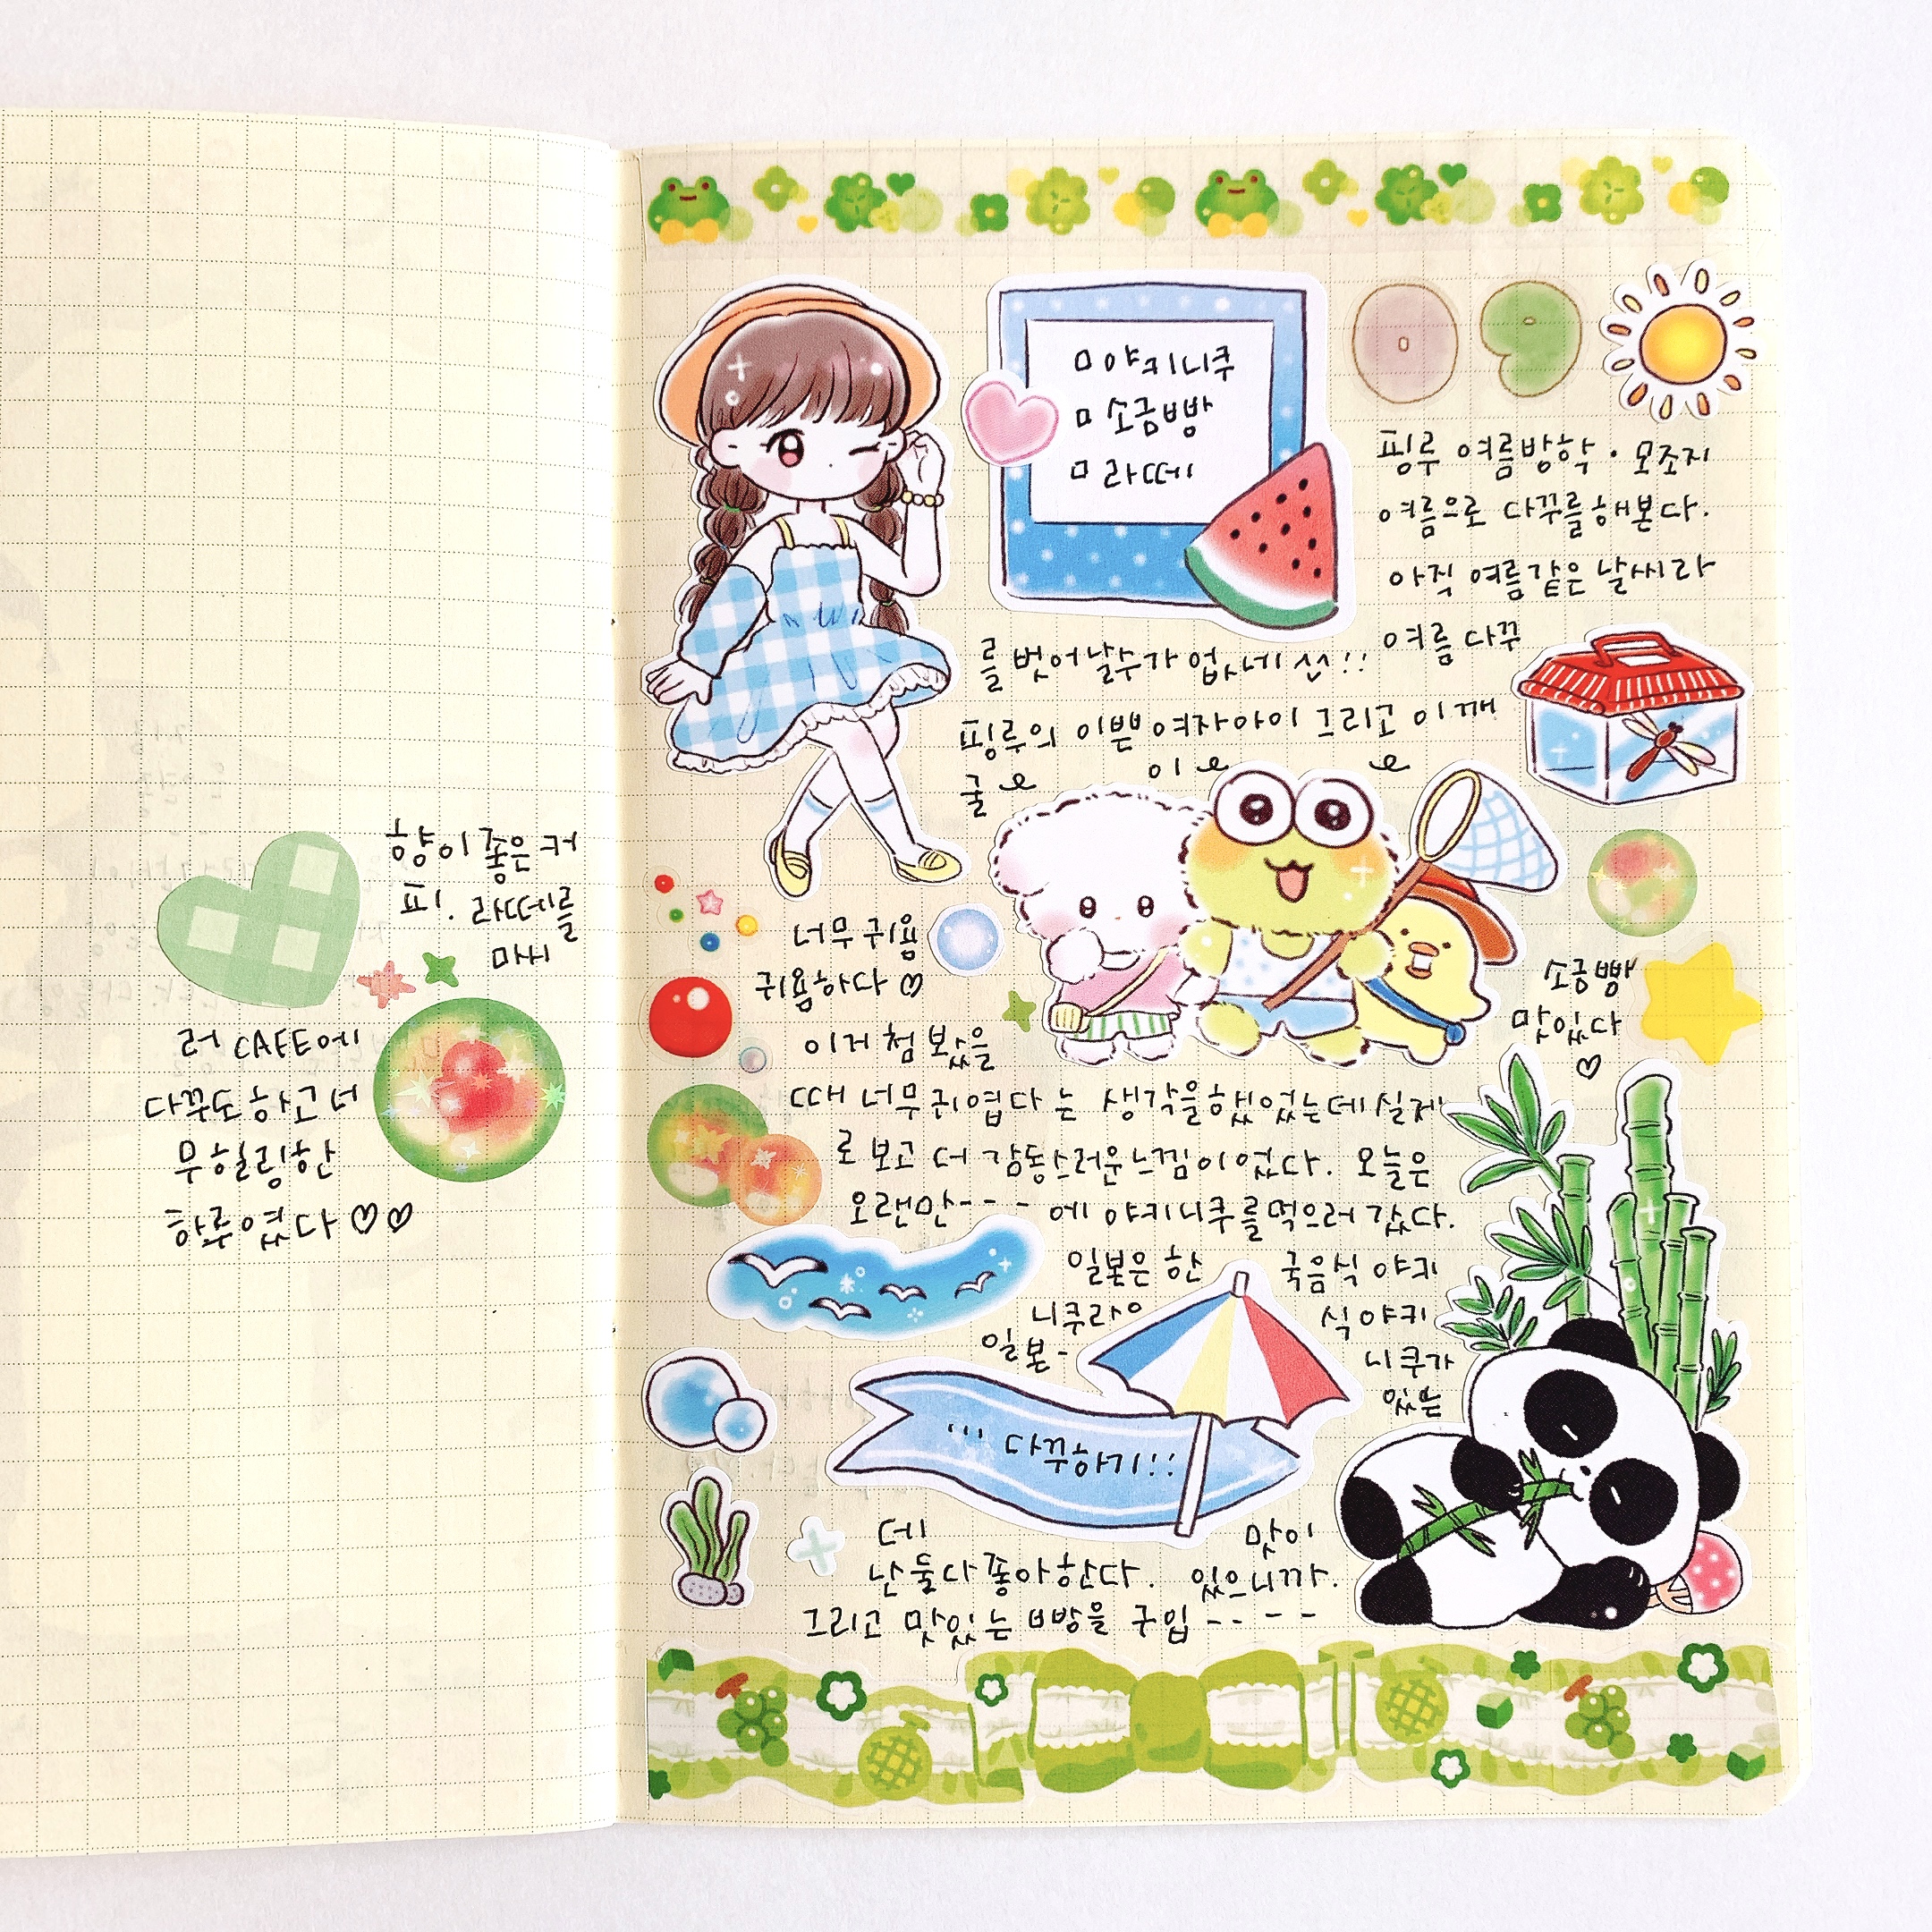 향이 좋은 커
피!. 라떼를
마시
러 CAFE에
다꾸도 하고 너
무 힐링한
하루였다♡♡
□ 야키니쿠
□ 소금빵
□ 라떼
09
핑루 여름방학 · 모조지
여름으로 다꾸를 해본다.
아직 여름같은 날씨라
여름 다꾸
를 벗어날수가 없네
핑루의 이쁜 여자아이 그리고 이 깨
굴이
너무 귀욤
귀욤하다 ♡
이거 첨 봤을
때 너무 귀엽다 는 생각을했었는데 실제
로 보고 더 감동스러운 느낌이었다. 오늘은
오랜만---에 야키니쿠를 먹으러 갔다.
일본은 한국음식 야키
니쿠랑
일본-
식 야키
니쿠가
있는
... 다꾸하기!!
데
난 둘다 좋아한다. 맛이
있으니까.
그리고 맛있는 빵을 구입----
소금빵
맛있다
♡